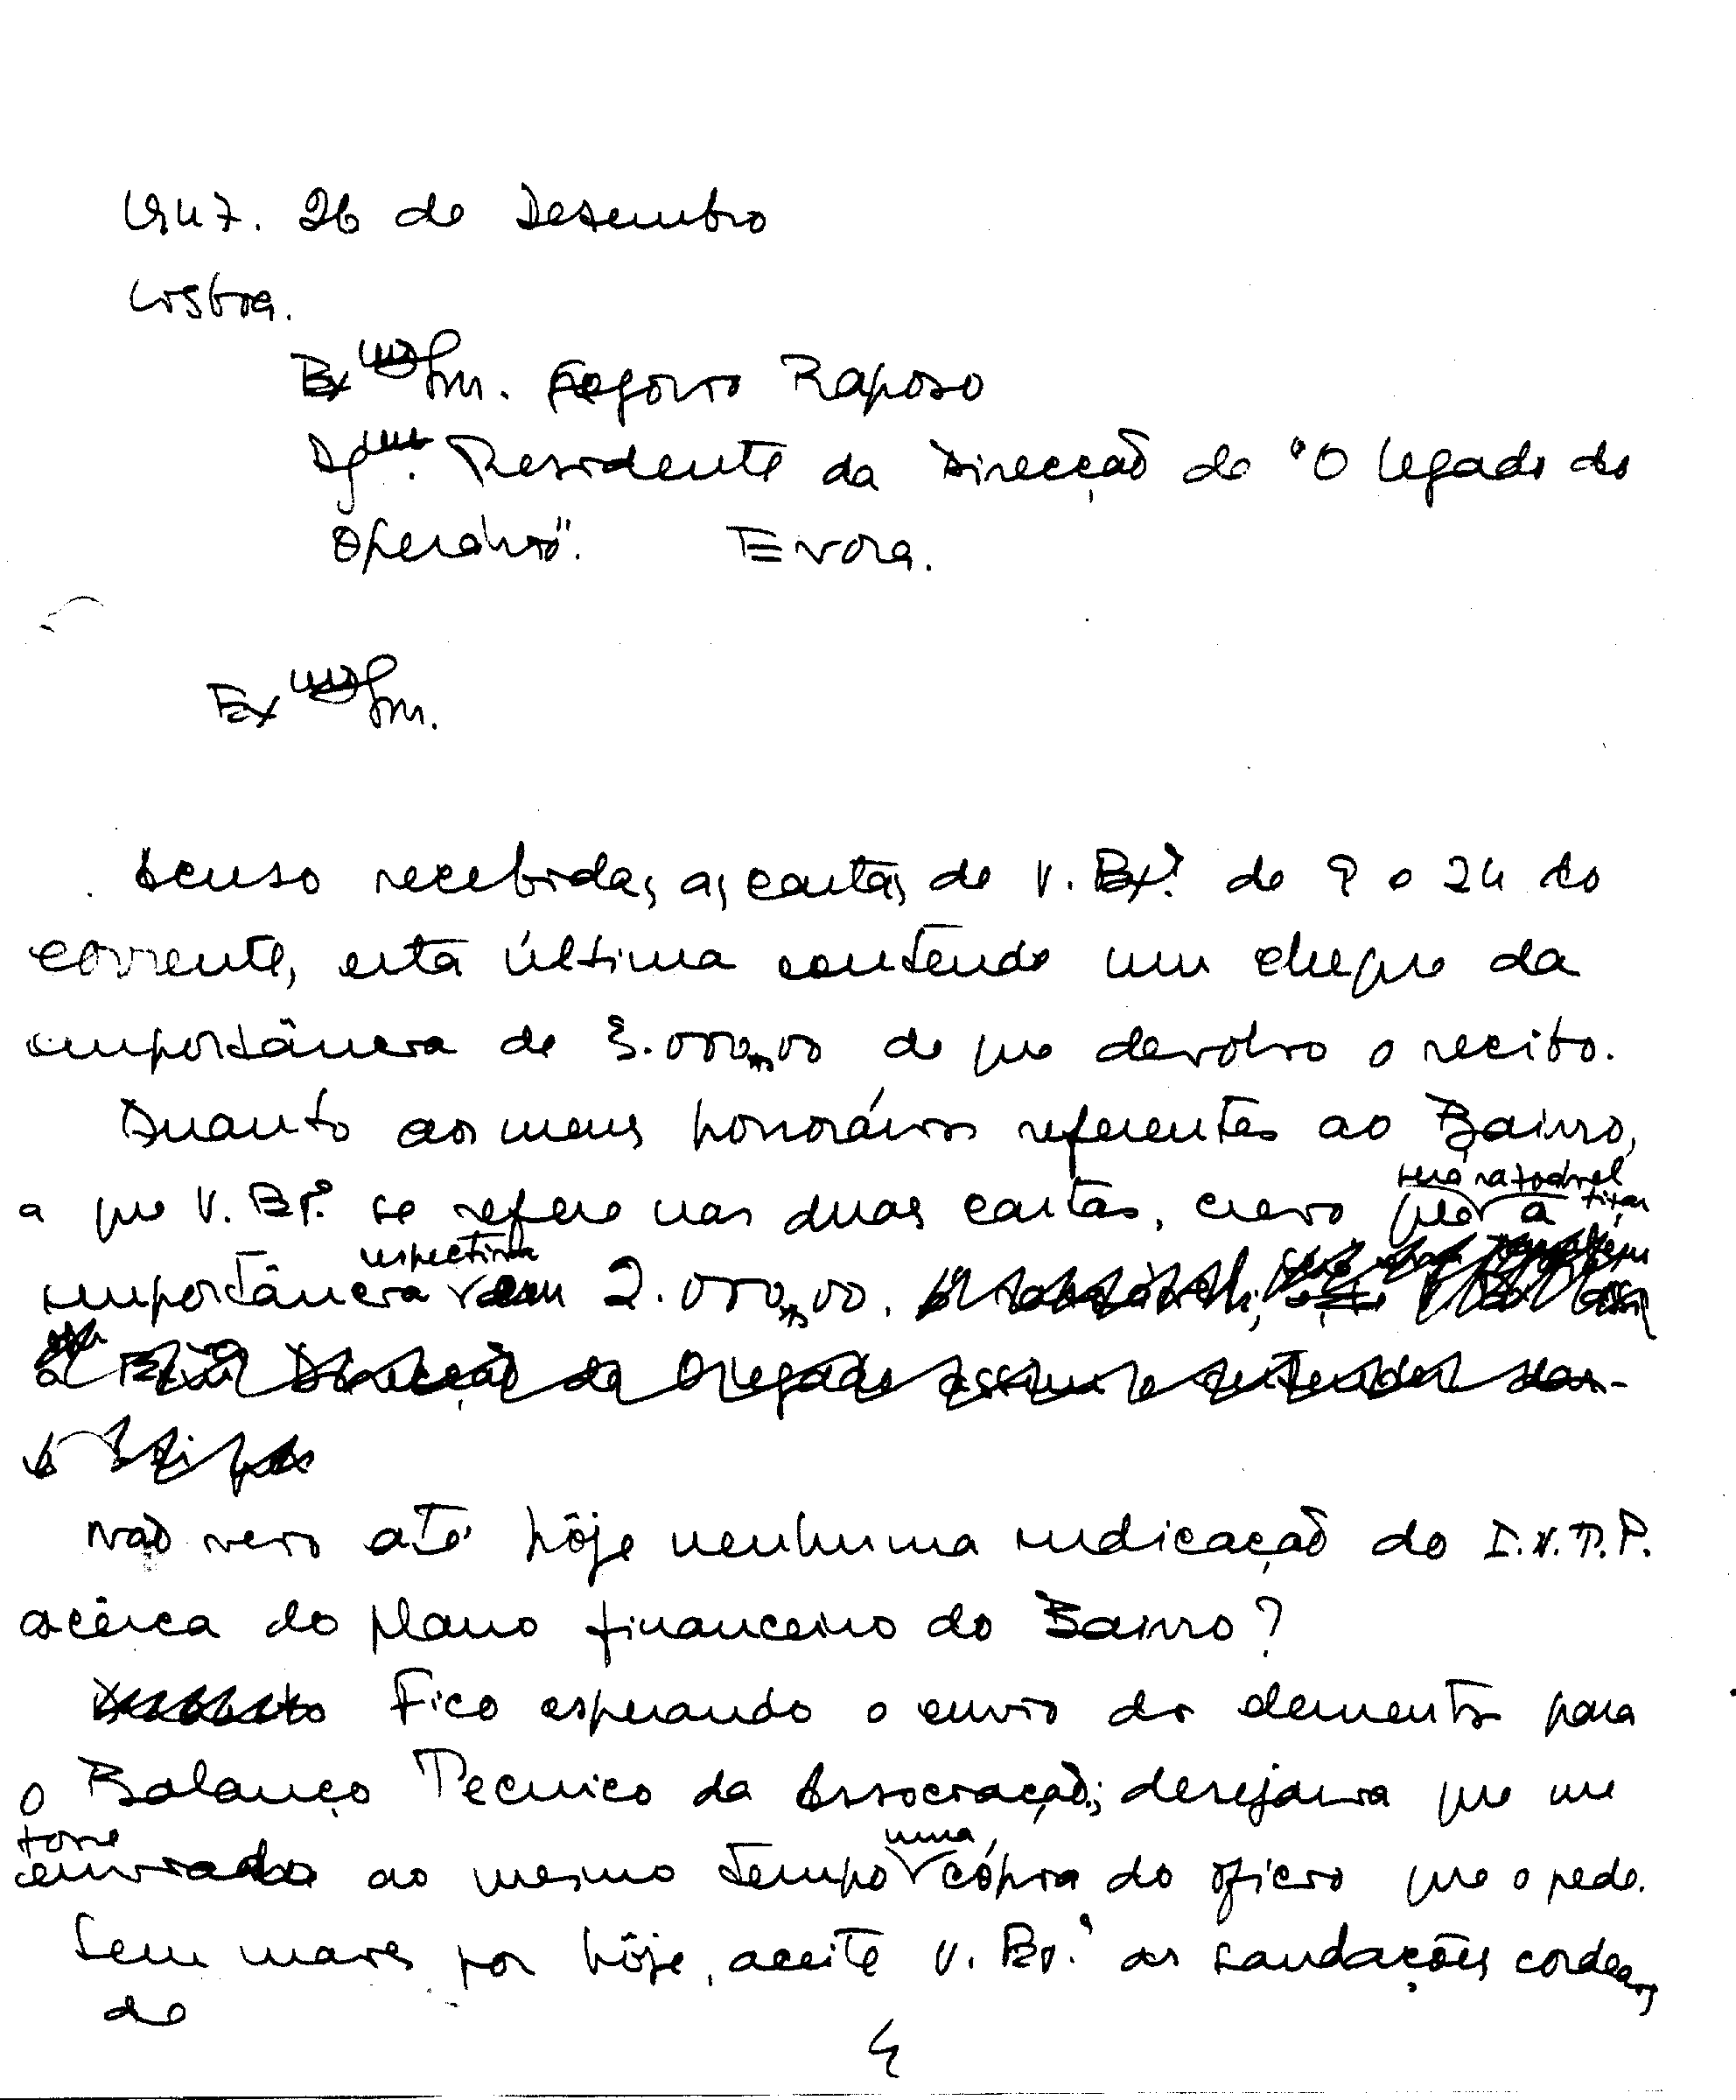 1947. 26 de Dezembro
Lisboa.
Exmo Snr. Raposo
Dgmo. Presidente da Direcção de "O Legado do
Operário". Evora.
Exmo Snr.
Acuso recebidas as cartas de V. Exª. de 9 e 24 do
corrente, esta última contendo um cheque da
importância de 3.000,00 de que devolvo o recibo.
Quanto aos meus honorários referentes ao Bairro,
a que V. Exª. se refere nas duas cartas, creio que será razoável fixar a
importância respectiva em 2.000,00.
a Direcção de O Legado assim o entender
Não veio até hôje nenhuma indicação do I.N.T.P.
acêrca do plano financeiro do Bairro?
Fico esperando o envio dos elementos para
o Balanço Tecnico da Associação; desejaria que me
fosse enviada ao mesmo tempo uma cópia do oficio que o pede.
Sem mais por hôje, aceite V. Exª. as saudações cordeais
de